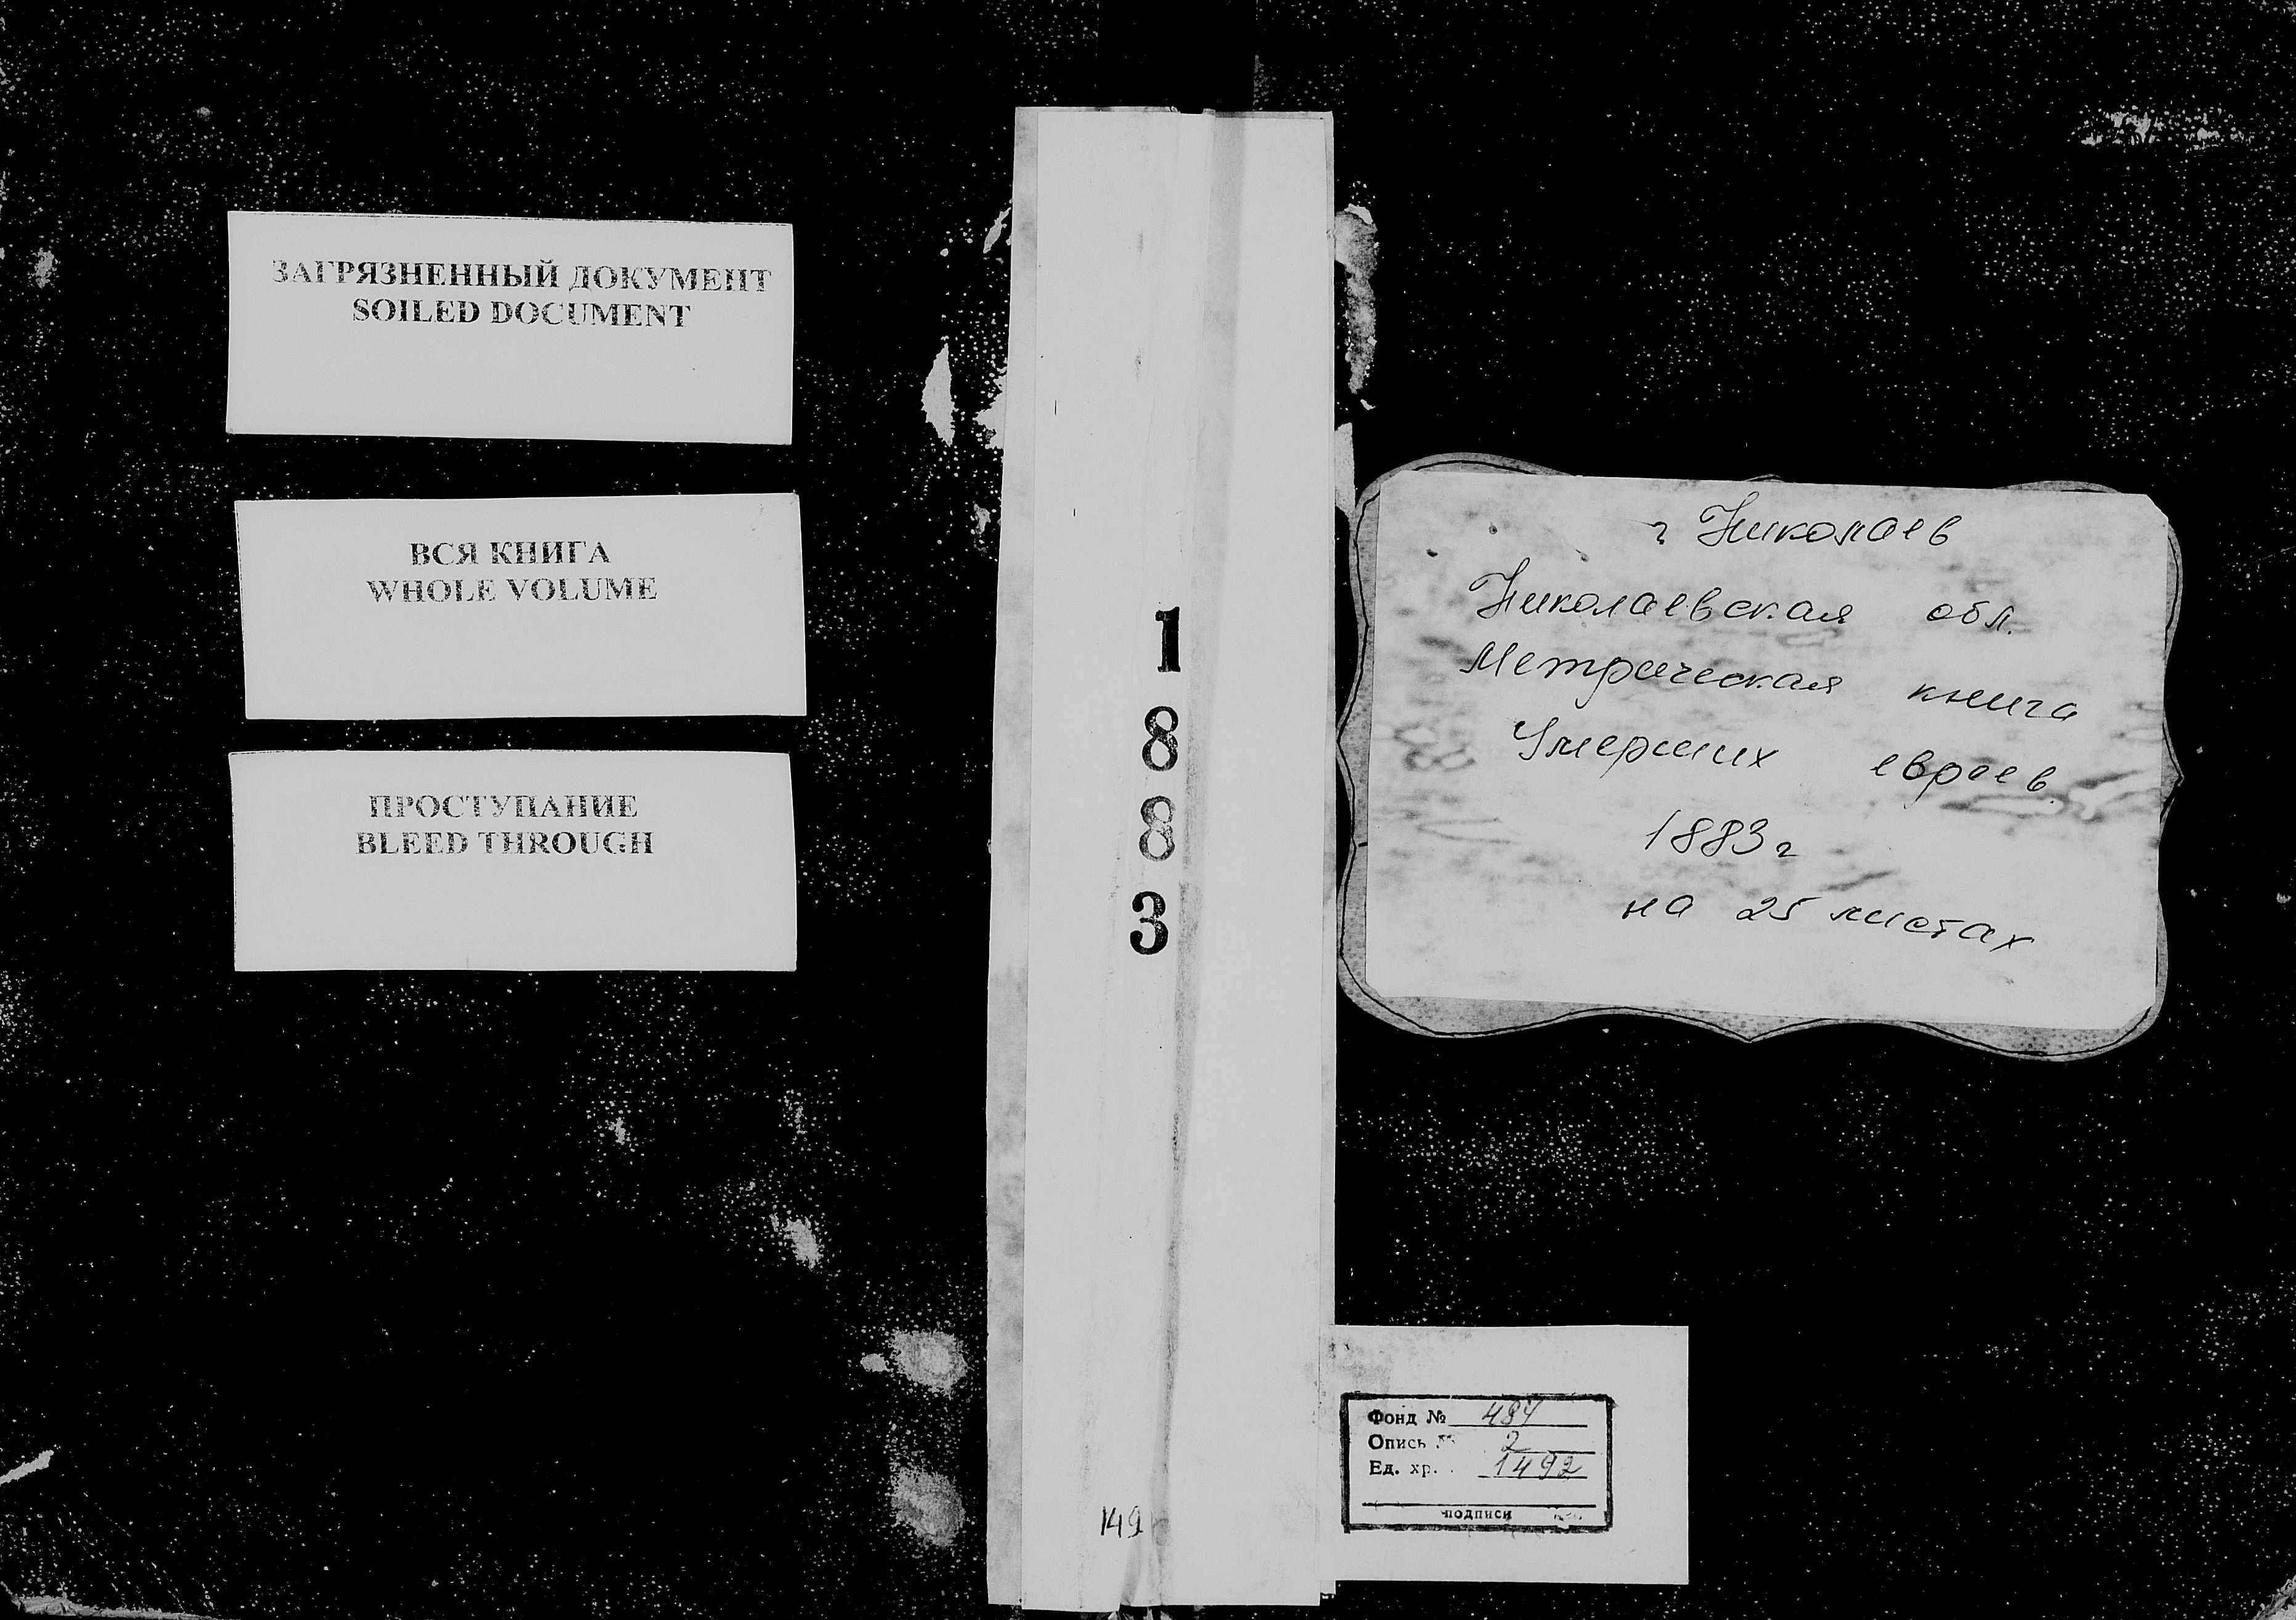 ЗАГРЯЗНЕННЫЙ ДОКУМЕНТ
SOILED DOCUMENT
ВСЯ КНИГА
WHOLE VOLUME
ПРОСТУПАНИЕ
BLEED THROUGH
1
8
8
3
149
г Николаев
Николаевская обл.
Метрическая книга
Умерших евреев.
1883 г
на 25 листах
Фонд № 484
Опись № 2
Ед. хр. 1492
подписи